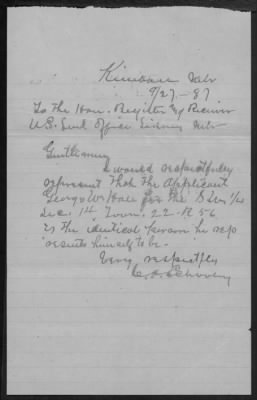 Kimball Nebr
9/27 - 87
To the Hon. Register & Receiver
U.S. Land Office Sidney Nebr
Gentlemen
I would respectfully
represent that the Applicant
George W Hall for the S W 1/4
Sec. 14 Town. 22 - R 56
is the identical person he rep
resents himself to be.
Very respectfly